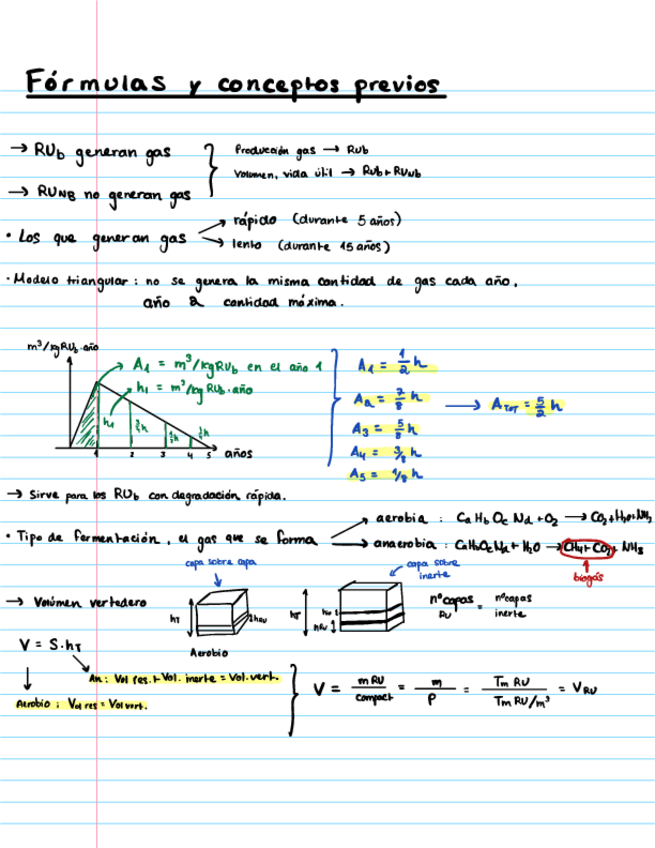 Fórmulas y conceptos previos
→ RUb generan gas
Producción gas → RUb
Volumen, vida útil → RUb + RUNb
→ RUNB no generan gas
· Los que generan gas
→ rápido (durante 5 años)
→ lento (durante 15 años)
· Modelo triangular: no se genera la misma cantidad de gas cada año,
año 2 cantidad máxima.
m³/kg RUb·año
A1 = m³/kg RUb en el año 1
h1 = m³/kg RUb·año
h1 3/4h 1/2h 1/4h
1 2 3 4 5 años
A1 = 1/2 h
A2 = 7/8 h
A3 = 5/8 h
A4 = 3/8 h
A5 = 1/8 h
→ ATOT = 5/2 h
→ Sirve para los RUb con degradación rápida.
· Tipo de fermentación, el gas que se forma
→ aerobia : Ca Hb Oc Nd + O2 → CO2 + H2O + NH3
→ anaerobia : CaHbOcNd + H2O → CH4 + CO2 + NH3
biogás
capa sobre capa
capa sobre
inerte
→ Volúmen vertedero
hT
hRU
Aerobio
hT
hin
hRU
nº capas RU = nº capas inerte
V = S·hT
An: Vol res. + Vol. inerte = Vol. vert.
Aerobio : Vol res = Vol vert.
V = m RU / compact = m / ρ = Tm RU / Tm RU/m³ = VRU